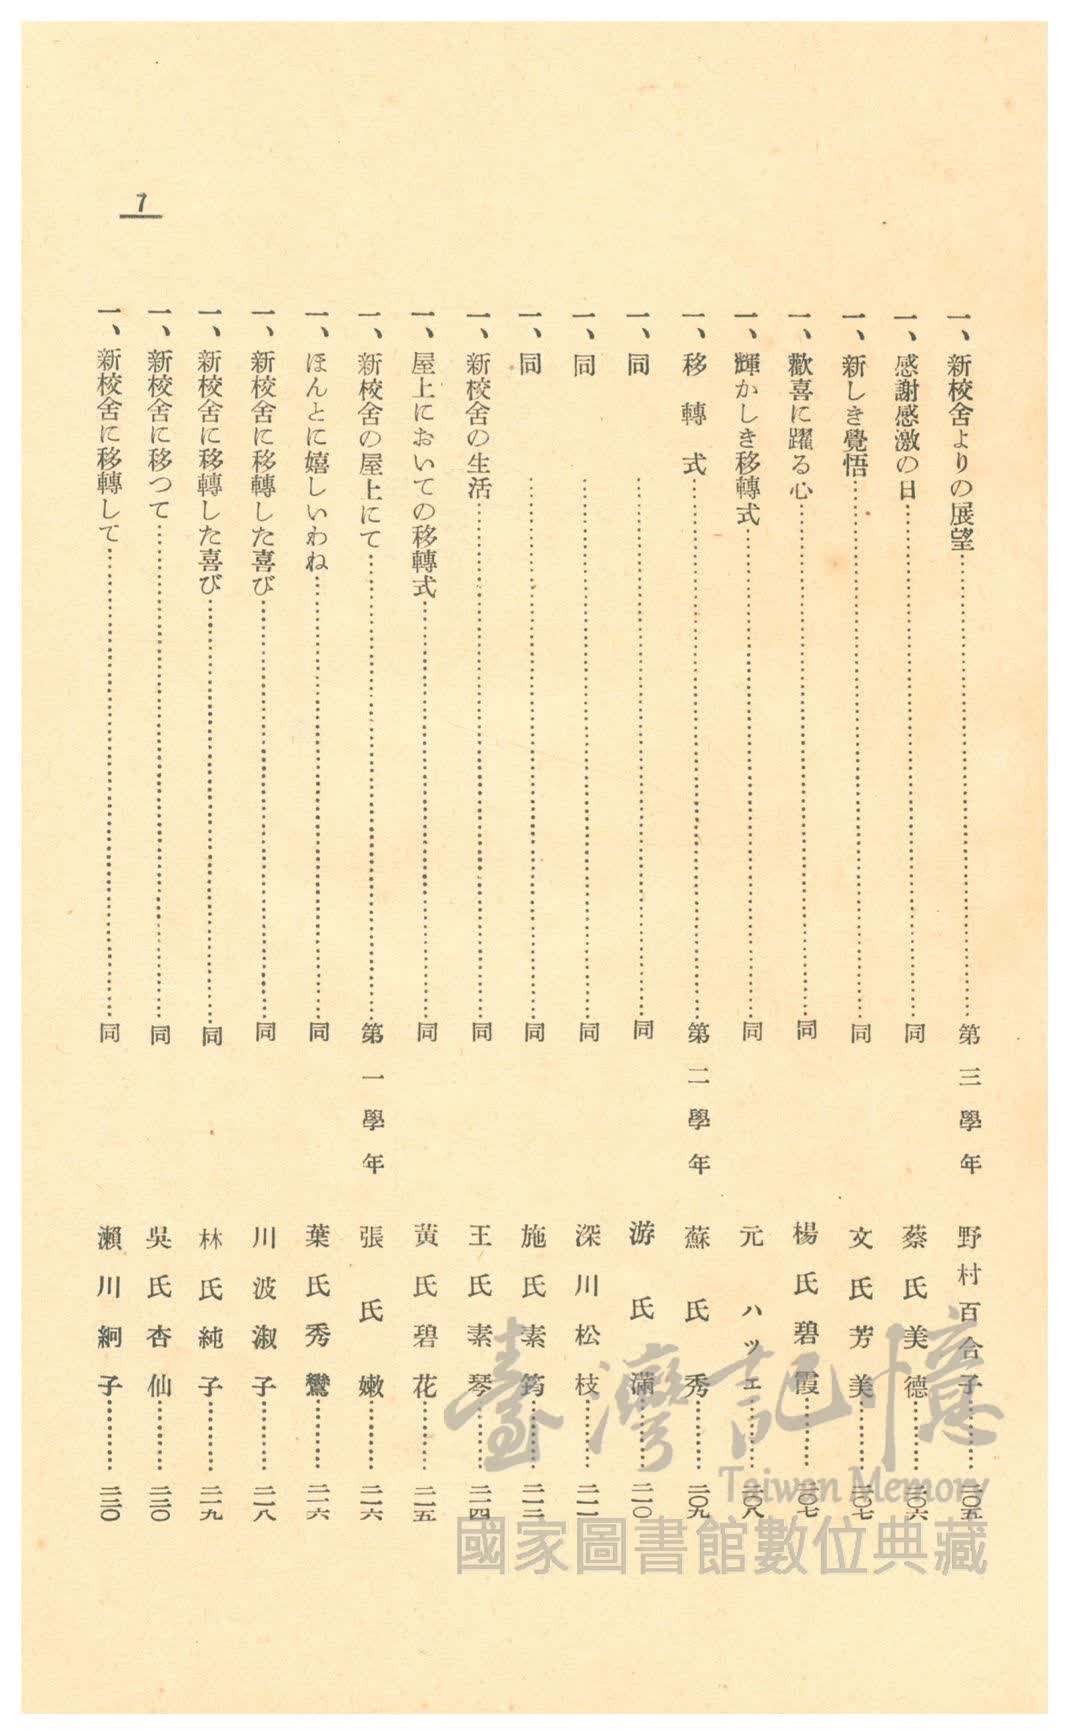 7
一、新校舍よりの展望……第三學年 野村百合子……二〇五
一、感謝感激の日……同 蔡氏美德……二〇六
一、新しき覺悟……同 文氏芳美……二〇七
一、歡喜に躍る心……同 楊氏碧霞……二〇七
一、輝かしき移轉式……同 元ハツエ……二〇八
一、移轉式……第二學年 蘇氏秀……二〇九
一、同……同 游氏滿……二一〇
一、同……同 深川松枝……二一一
一、同……同 施氏素筠……
一、新校舍の生活……同 王氏素琴……二一四
一、屋上においての移轉式……同 黃氏碧花……二一五
一、新校舍の屋上にて……第一學年 張氏嫩……二一六
一、ほんとに嬉しいわね……同 葉氏秀鸞……二一六
一、新校舍に移轉した喜び……同 川波淑子……二一八
一、新校舍に移轉した喜び……同 林氏純子……二一九
一、新校舍に移つて……同 吳氏杏仙……二二〇
一、新校舍に移轉して……同 瀨川絅子……二二〇
臺灣記憶
Taiwan Memory
國家圖書館數位典藏